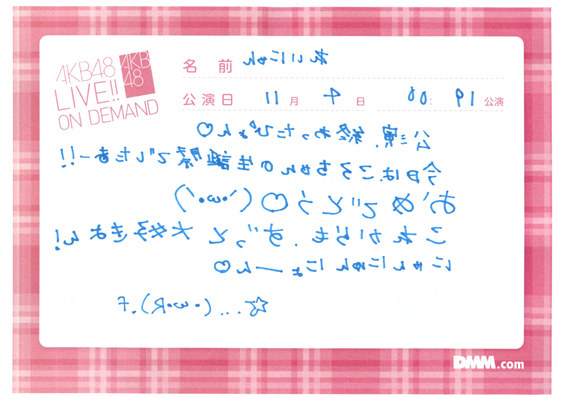 AKB48
LIVE!!
ON DEMAND
AKB
48
名前 あいにゃん
公演日 11月 4日 00:19 公演
公演、終わったぴょん♡
今日はころちゃんの生誕祭でしたよー!!
おめでとう♡(´・ω・`)
これからも、ずっと大好きよん!
にゃんにゃんにょーん♡
DMM.com